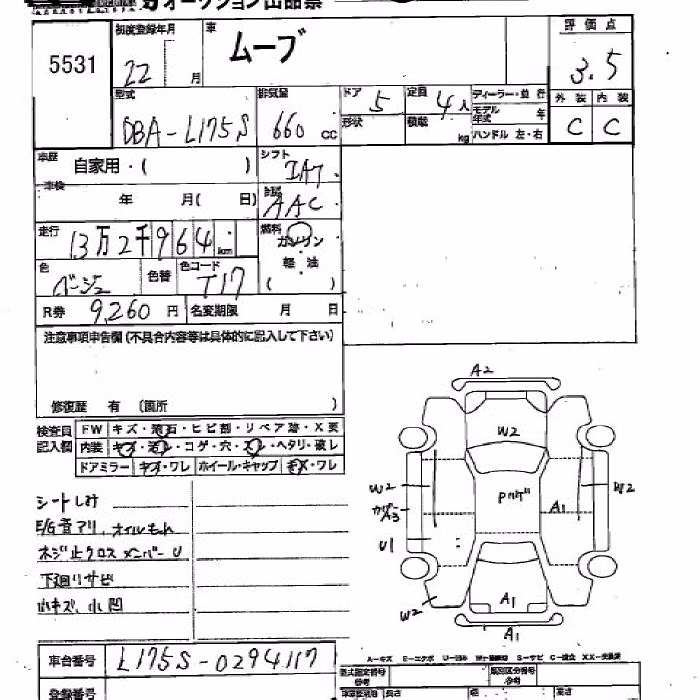 オークション出品票
5531
初度登録年月
22 月
車
ムーブ
評価点
3.5
型式
DBA-L175S
排気量
660 CC
ドア 5
形状
定員 4人
積載 kg
ディーラー・並行
モデル年式 年
ハンドル 左・右
外装 内装
C C
車歴 自家用・( )
シフト
IAT
車検 年 月( 日)
AAC
走行 13万2千964 km
燃料
ガソリン
軽油
( )
色 ベージュ
色替
色コード T17
R券 9,260 円
名変期限 月 日
注意事項申告欄(不具合内容等は具体的に記入して下さい)
修復歴 有 (箇所 )
検査員記入欄
FW キズ・飛石・ヒビ割・リペア跡・X要
内装 キズ・汚レ・コゲ・穴・スレ・ヘタリ・破レ
ドアミラー キズ・ワレ ホイール・キャップ キズ・ワレ
シートしみ
E/G音アリ、オイルもれ
ネジ止クロスメンバーU
下廻りサビ
小キズ、小凹
A2
W2
W2
W2
Pハゲ
A3
A1
U1
W2
A1
A1
車台番号 L175S-0294117
登録番号
型式指定番号
参考
類別区分番号
参考
長さ 幅 高さ